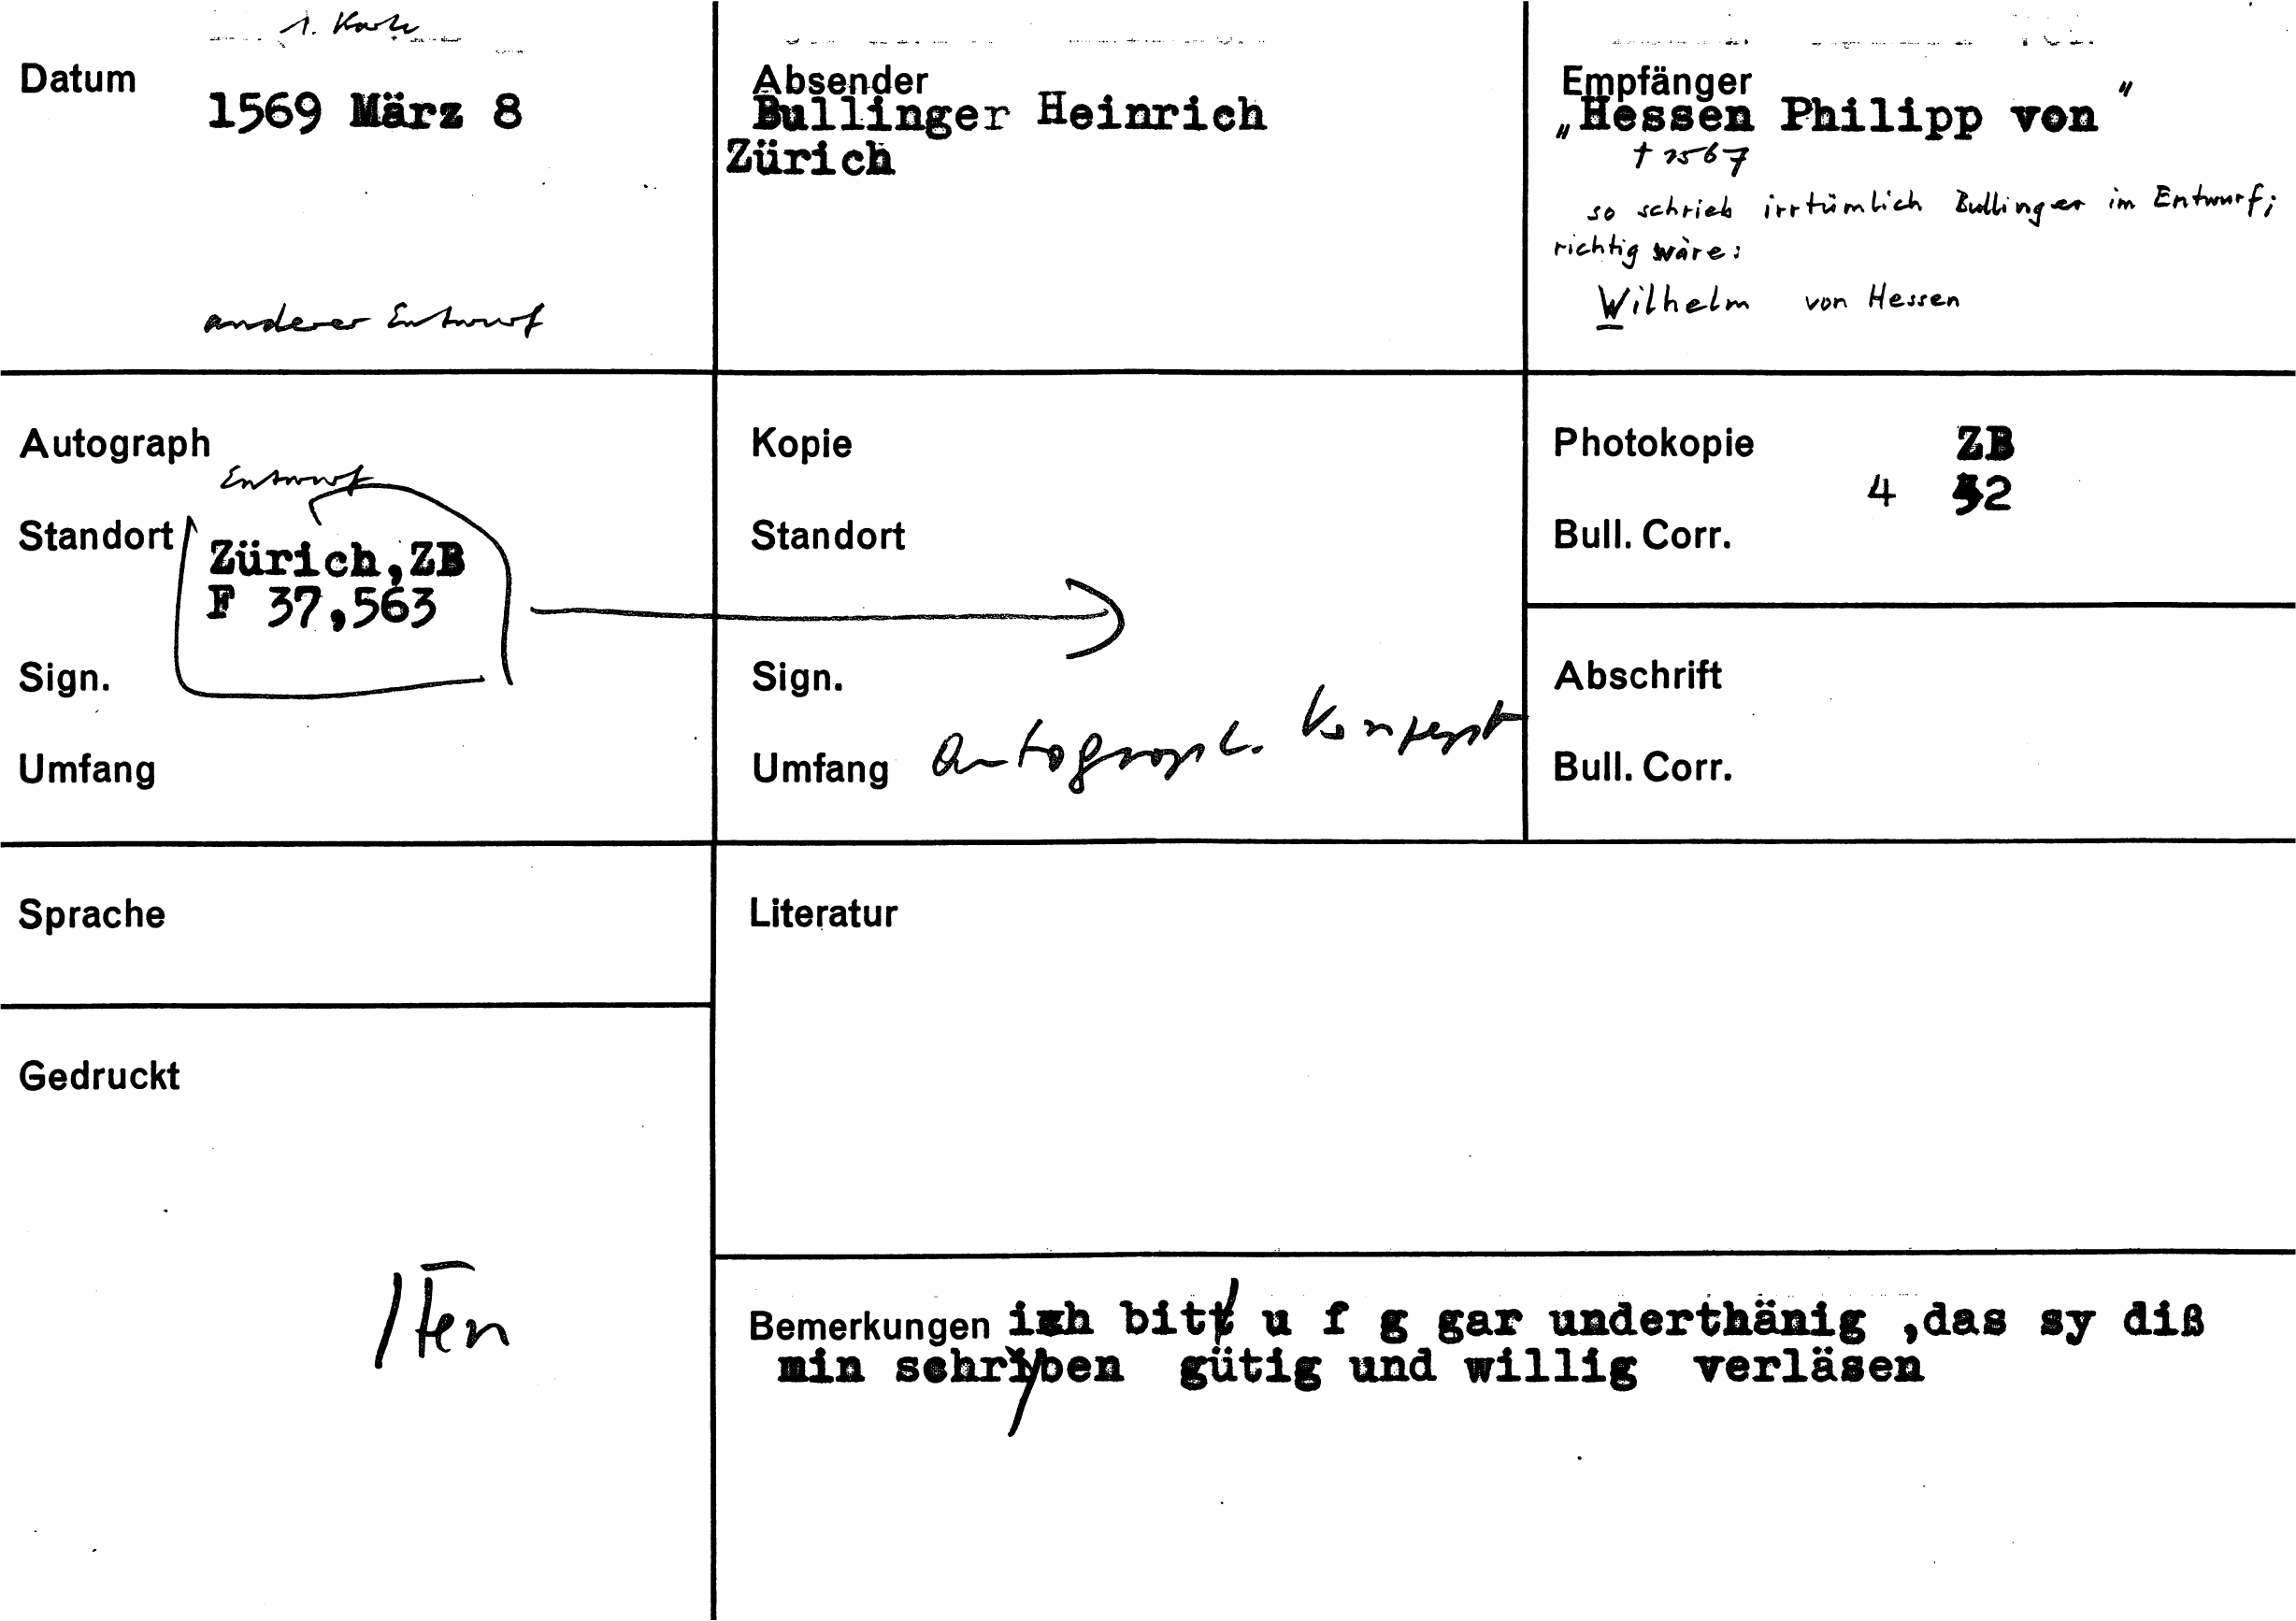 1. Karte
Datum
1569 März 8
anderer Entwurf
Absender
Bullinger Heinrich
Zürich
Empfänger
"Hessen Philipp von"
† 1567
so schrieb irrtümlich Bullinger im Entwurf;
richtig wäre:
Wilhelm von Hessen
Autograph
Entwurf
Standort
Zürich,ZB
F 37,563
Sign.
Umfang
Kopie
Standort
Sign.
Umfang Autograph. Konzept
Photokopie ZB
4 52
Bull. Corr.
Abschrift
Bull. Corr.
Sprache
Literatur
Gedruckt
Bemerkungen ich bitt u f g gar underthänig ,das sy diß
min schryben gütig und willig verläsen